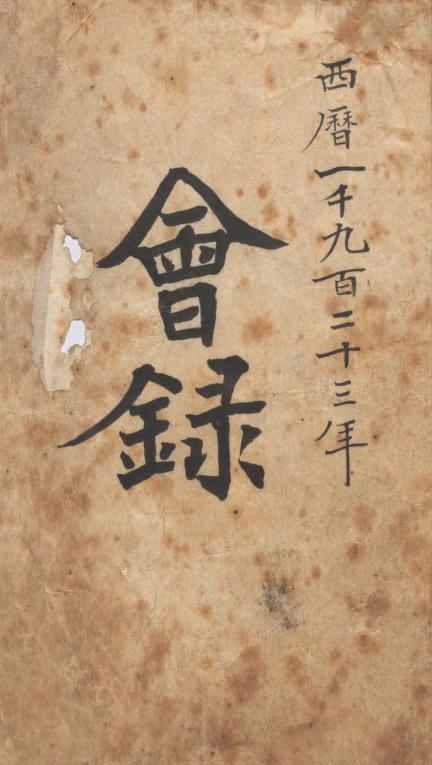 西曆一千九百二十三年
會錄